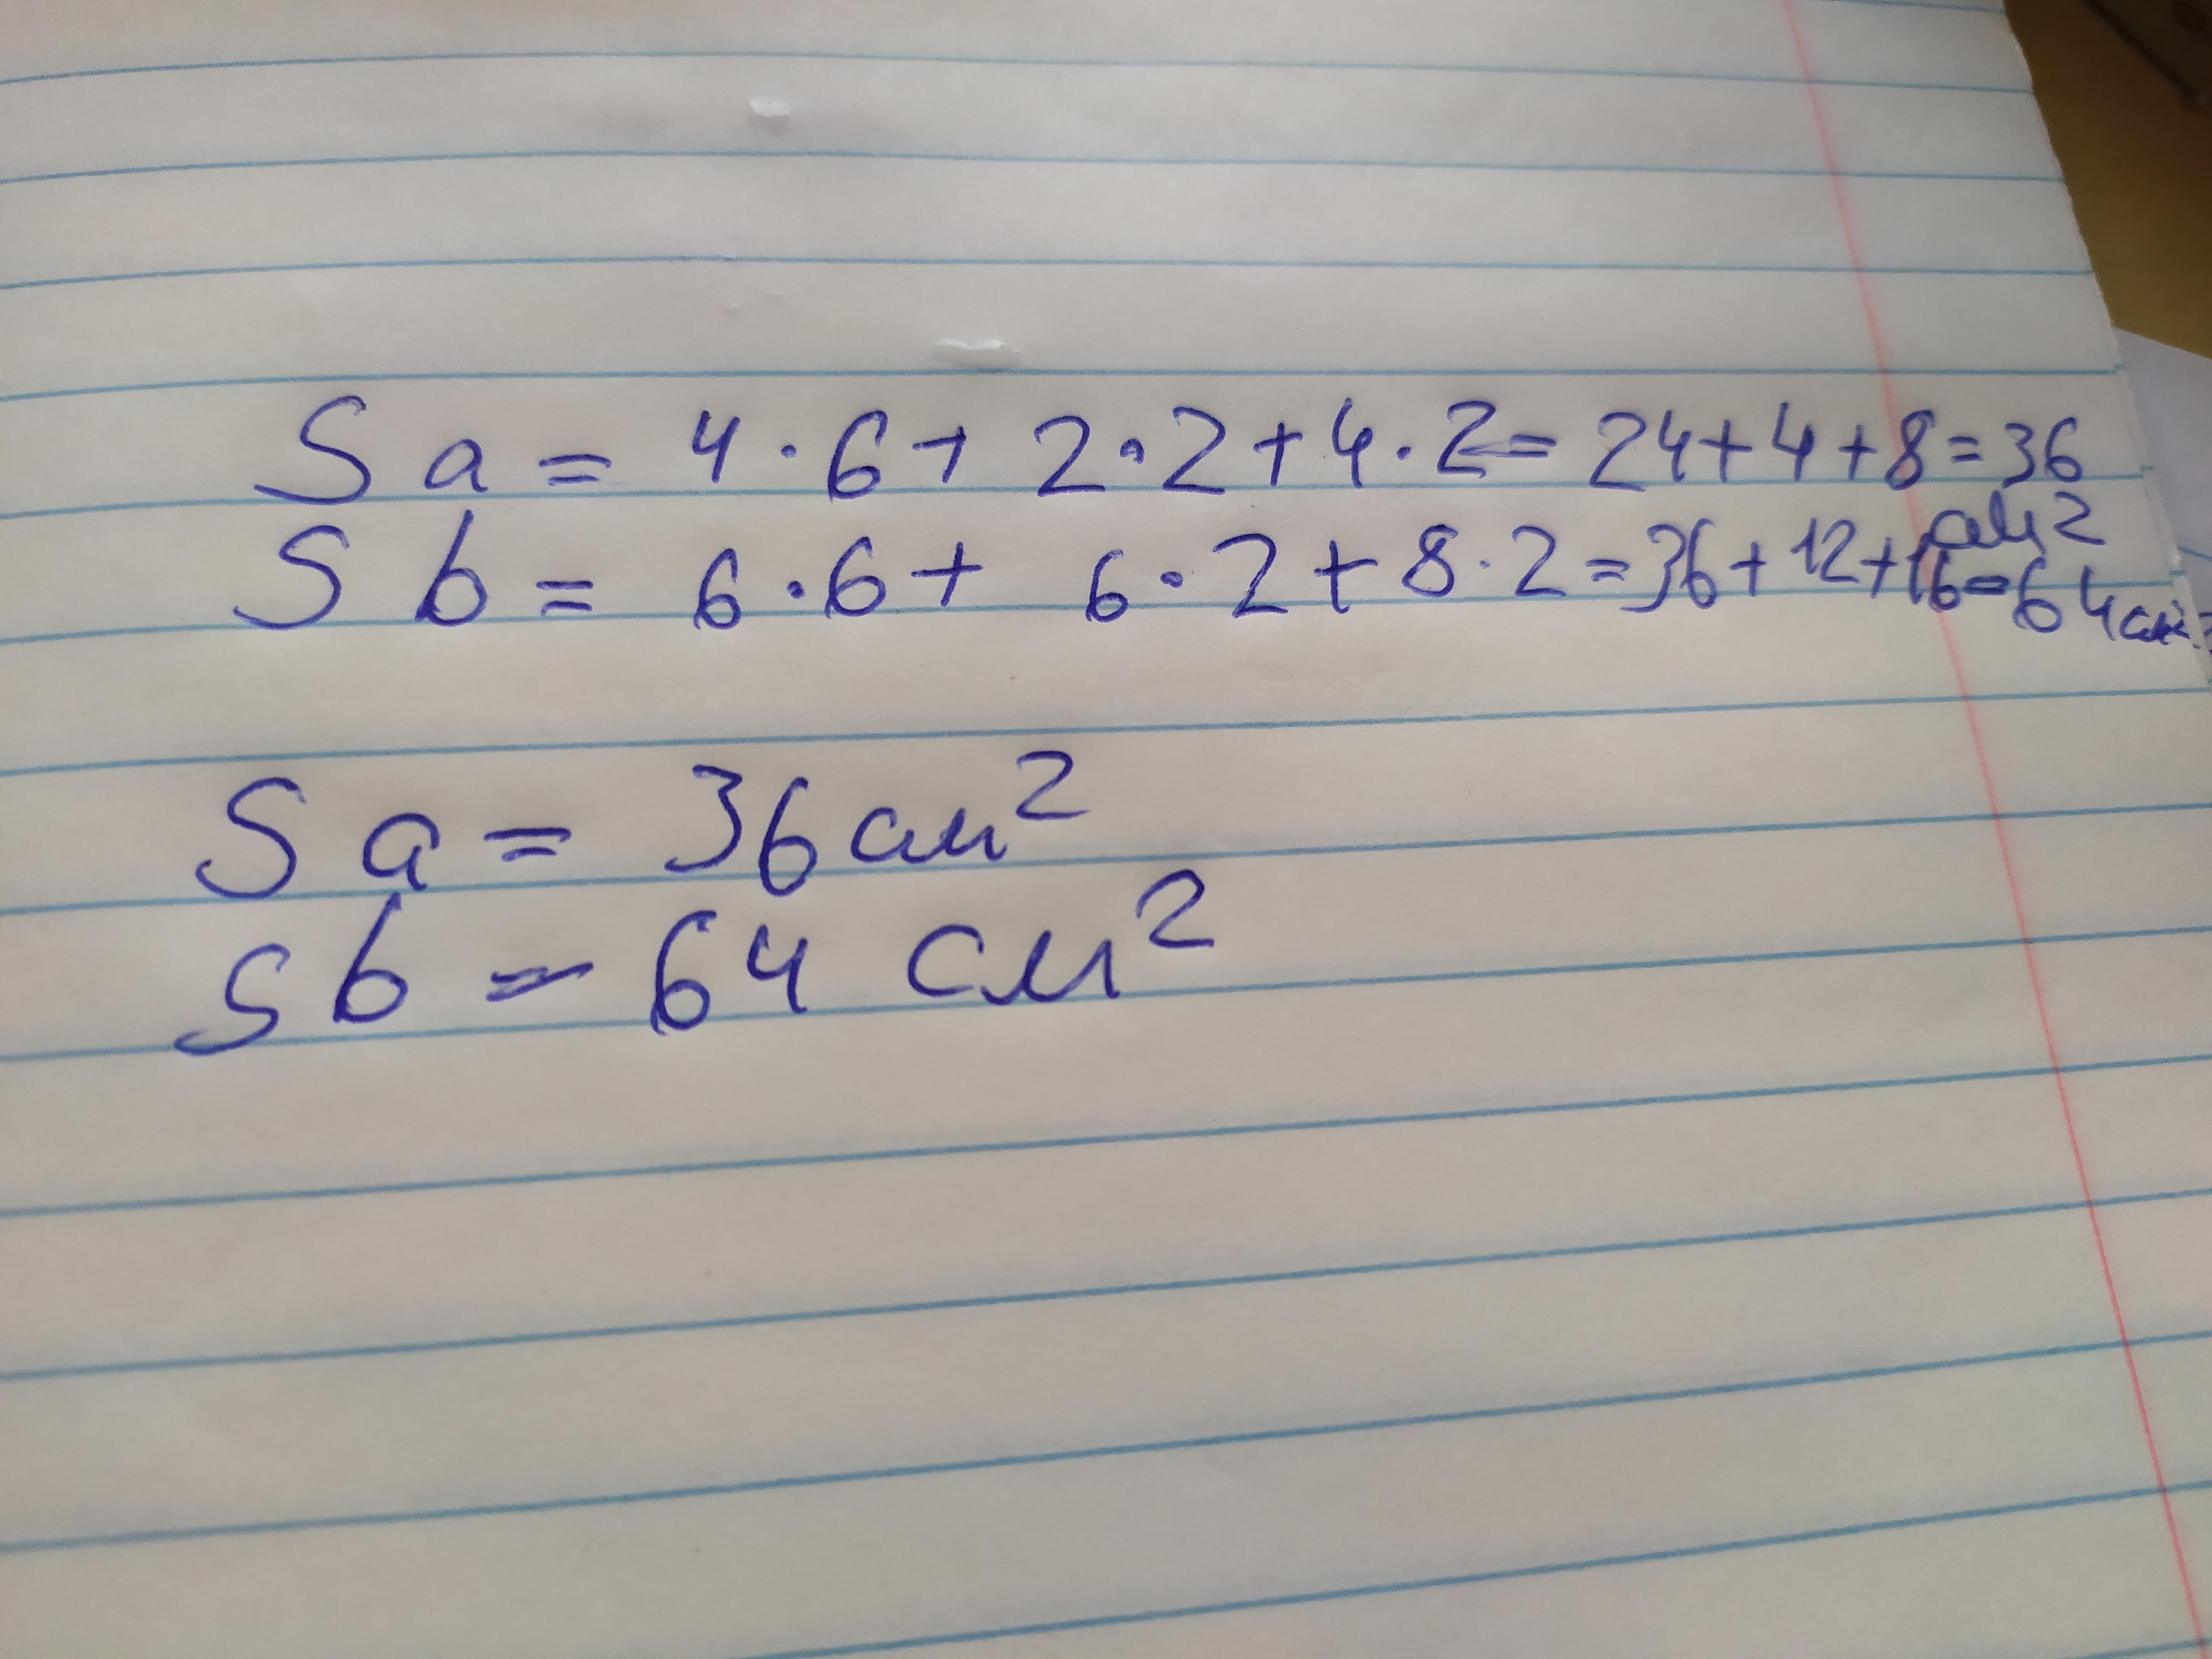 S a = 4 · 6 + 2 · 2 + 4 · 2 = 24 + 4 + 8 = 36
см2
S b = 6 · 6 + 6 · 2 + 8 · 2 = 36 + 12 + 16 = 64 см2
S a = 36 см²
S b = 64 см²